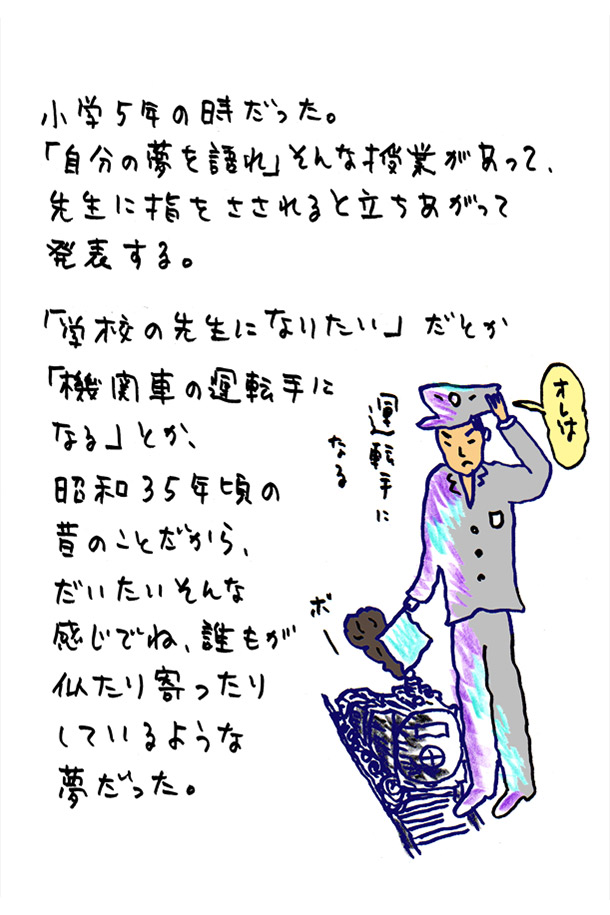 小学5年の時だった。
「自分の夢を語れ」そんな授業があって、
先生に指をさされると立ちあがって
発表する。
「学校の先生になりたい」だとか
「機関車の運転手に
なる」とか、
昭和35年頃の
昔のことだから、
だいたいそんな
感じでね、誰もが
似たり寄ったり
しているような
夢だった。
オレは
運転手に
なる
ボー